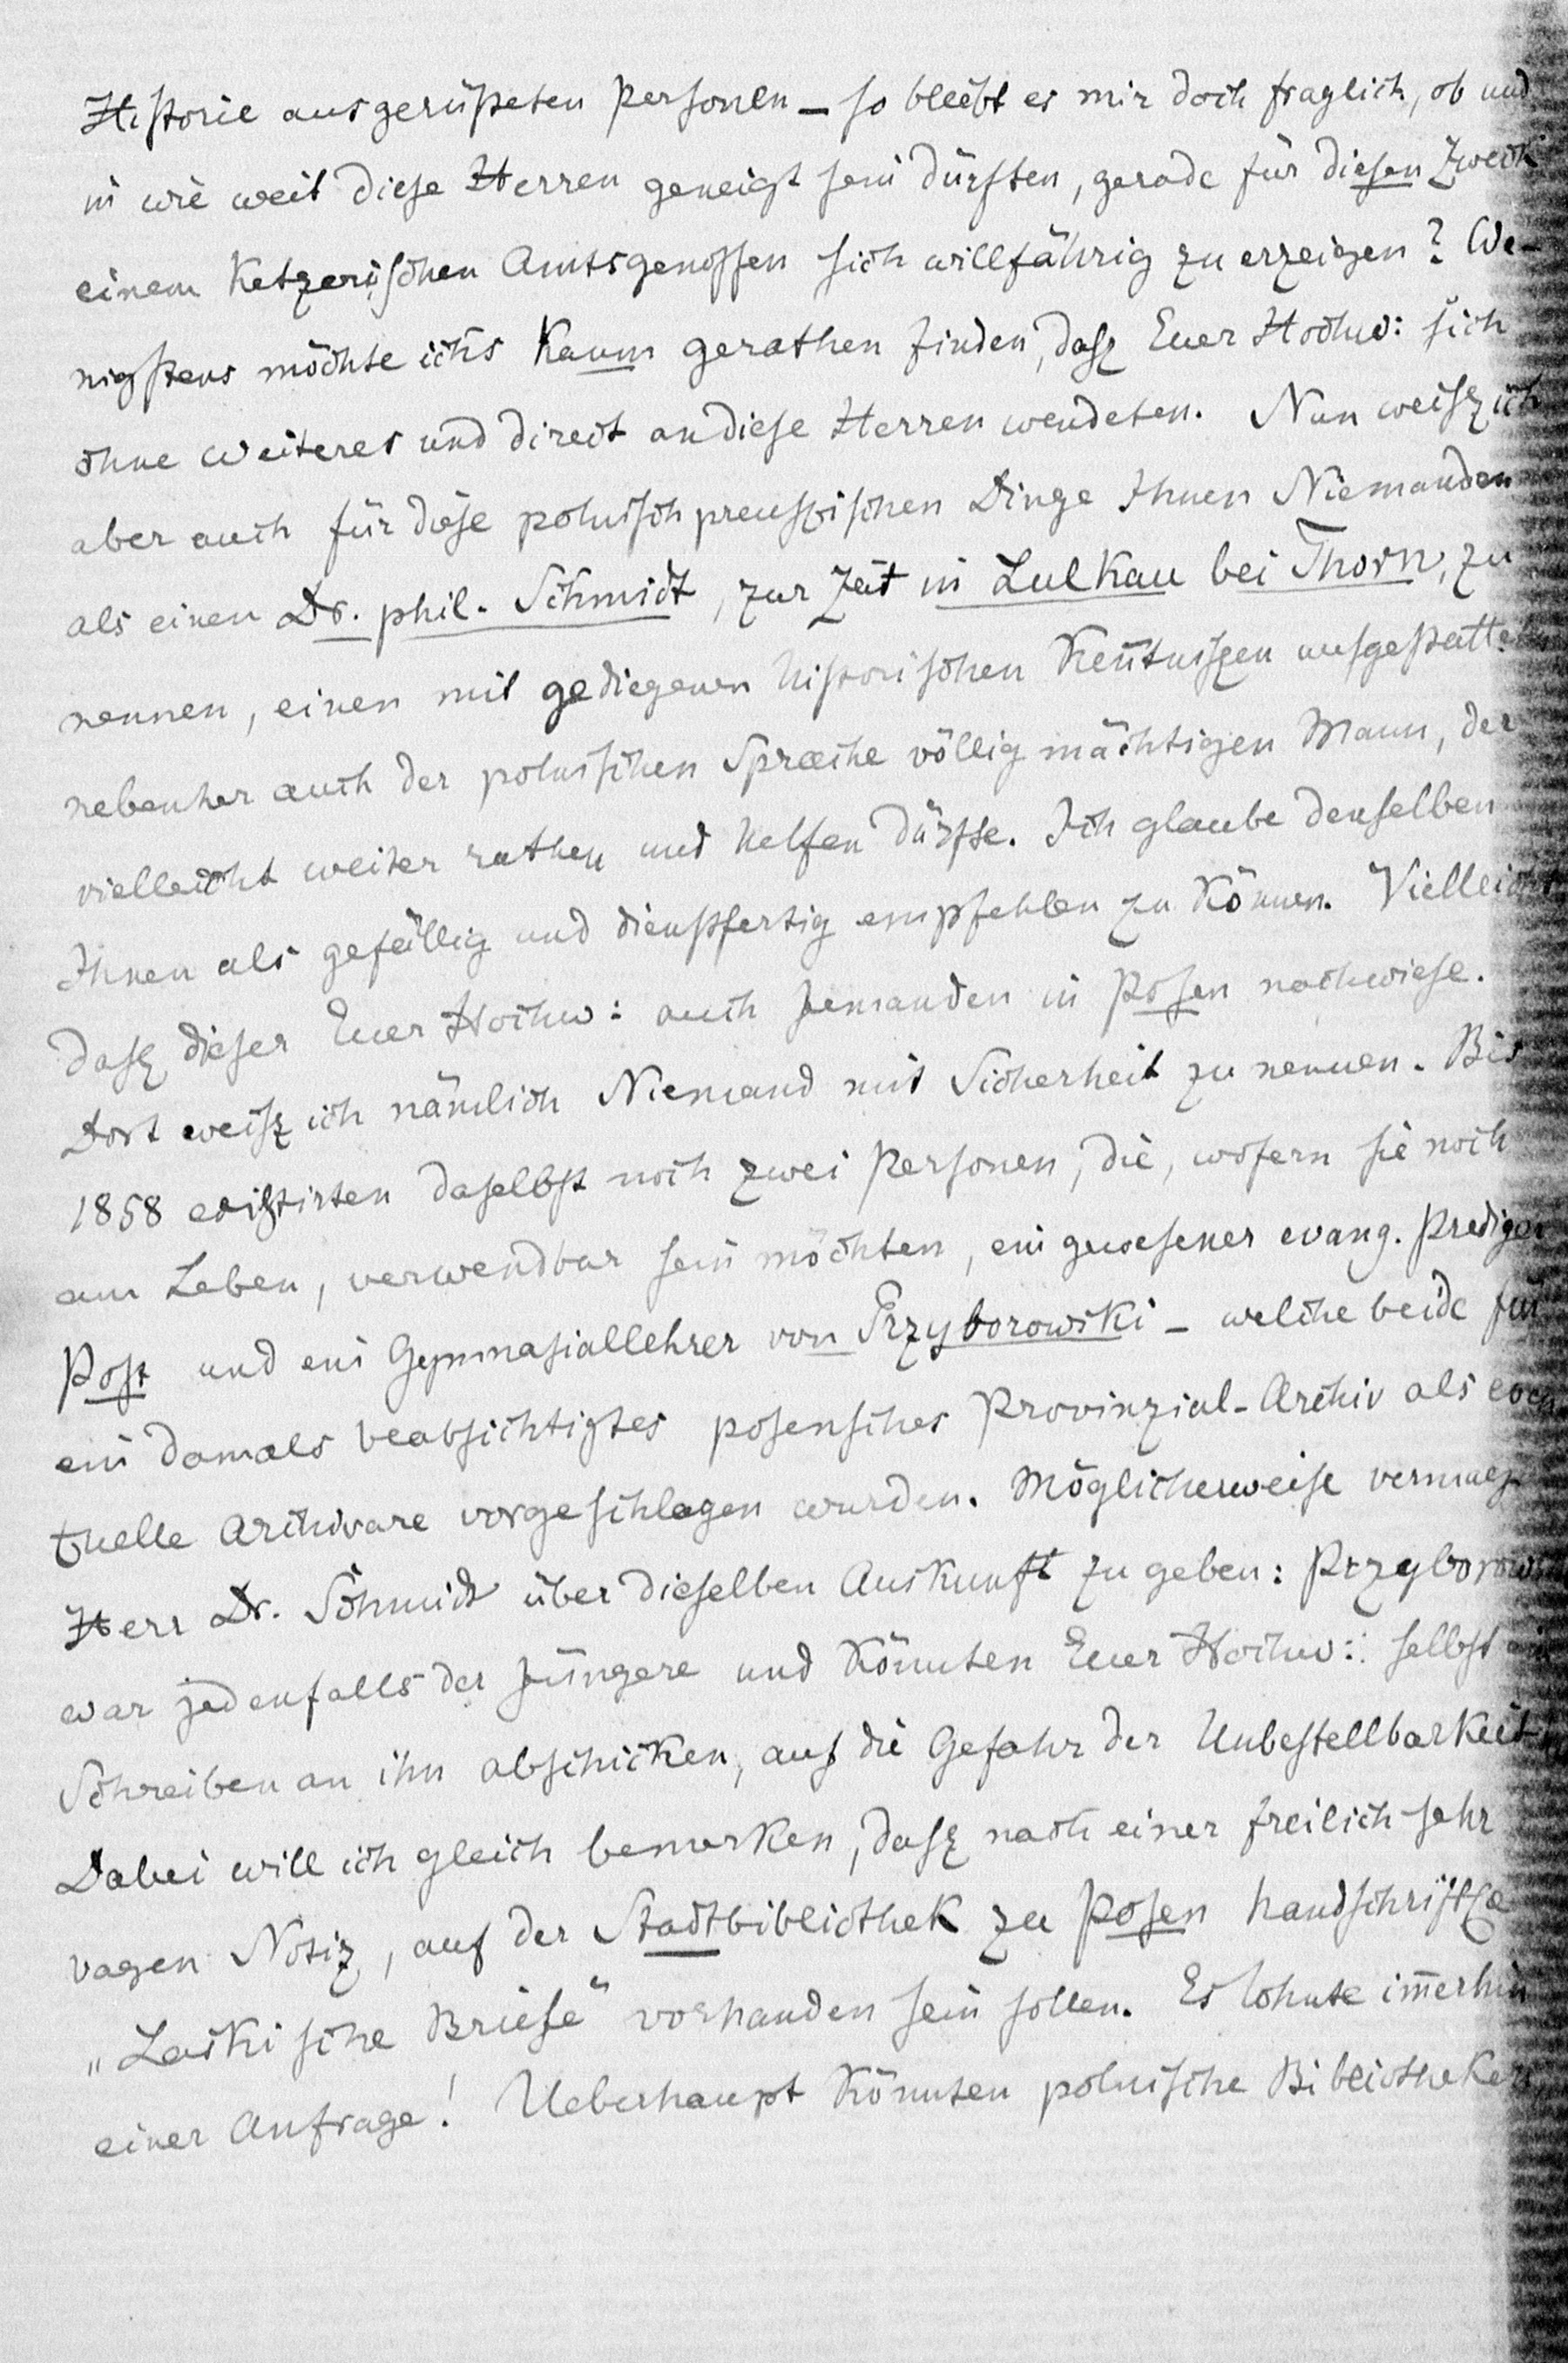 Historie ausgerüsteten Personen – so bleibt es mir doch fraglich, ob und
in wie weit diese Herren geneigt sein dürften, gerade für diesen Zweck
einem Ketzerischen Amtsgenossen sich willfährig zu erzeigen? We-
nigstens möchte ichs kaum gerathen finden, dasz Euer Hochw: sich
ohne Weiteres und direct an diese Herren wendeten. Nun weisz ich
aber auch für diese polnisch preuszischen Dinge Ihnen Niemanden
als einen Dr. phil. Schmidt, zur Zeit in Lulkau bei Thorn, zu
nennen, einen mit gediegenen historischen Keñtniszen
nebenher auch der polnischen Sprache völlig mächtigen Mann, der
vielleicht weiter rathen und helfen dürfte. Ich glaube denselben
Ihnen als gefällig und dienstfertig empfehlen zu können. Vielleicht
dasz dieser Euer Hochw: auch Jemanden in Posen nachwiese.
Dort weisz ich nämlich Niemand mit Sicherheit zu nennen. Bis
1858 existirten daselbst noch zwei Personen, die, wofern sie noch
am Leben, verwendbar sein möchten, ein gewesener evang. Prediger
Post und ein Gymnasiallehrer von Przyborowski – welche beide für
ein damals beabsichtigtes posensches Provinzial-Archiv als even
tuelle Archivare vorgeschlagen wurden. Möglicherweise vermag
Herr Dr. Schmidt über dieselben Auskunft zu geben: Przyborow
war jedenfalls der Jüngere und könnten Euer Hochw: selbst ein
Schreiben an ihn abschicken, auf die Gefahr der Unbestellbarkeit.
Dabei will ich gleich bemerken, dasz nach einer freilich sehr
vagen Notiz, auf der Stadtbibliothek zu Posen
„Laskische Briefe“ vorhanden sein sollen. Es lohnte im̄erhin
einer Anfrage! Ueberhaupt könnten polnische Bibliotheken